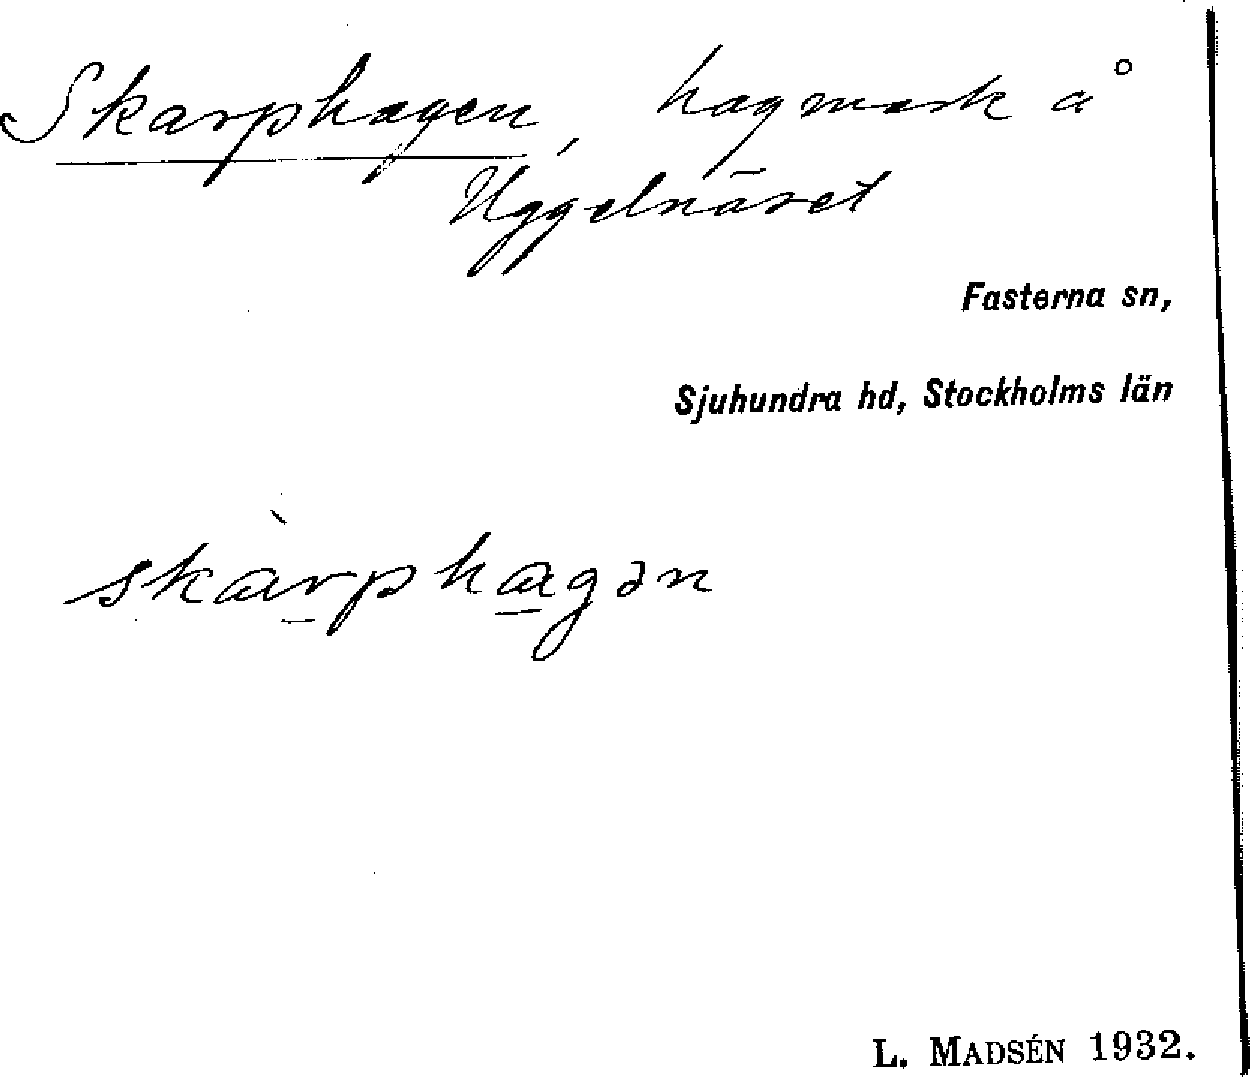 Skarphagen, hagmark å
Uggelnäset
Fasterna sn,
Sjuhundra hd, Stockholms län
skàrphagən
L. MADSÉN 1932.